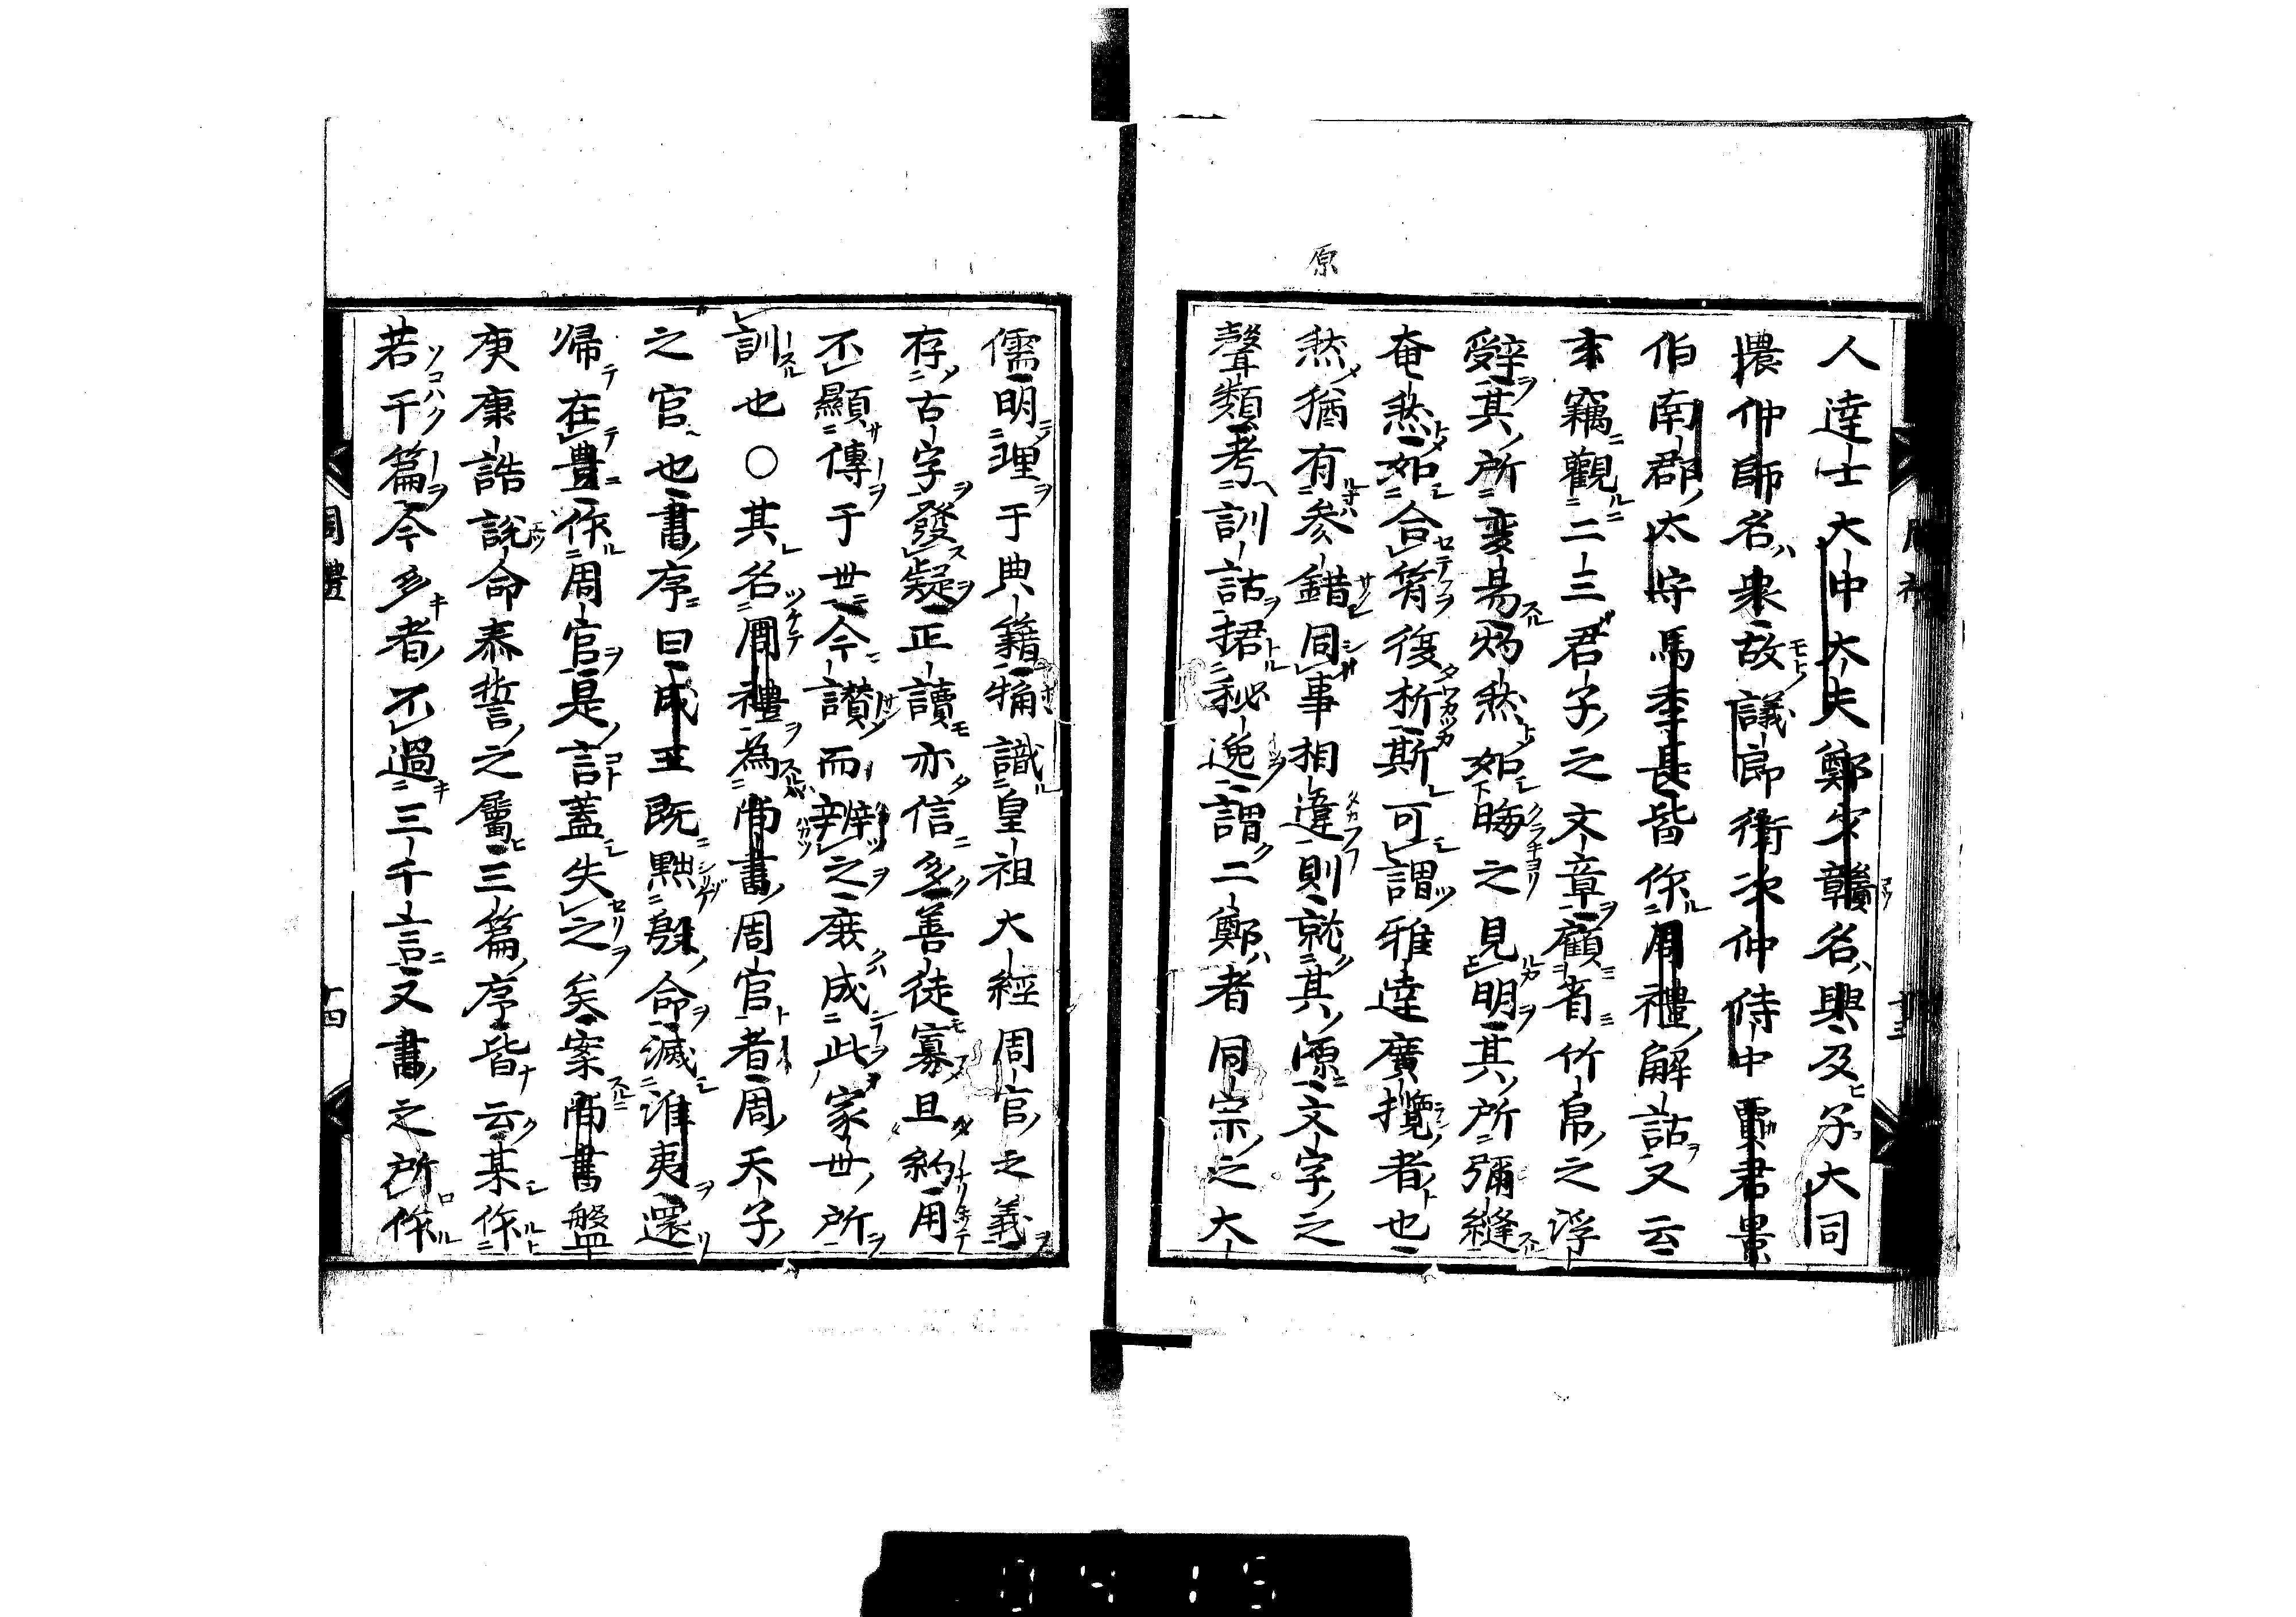 原
人達士大中大夫鄭少贛名興及子大司
農仲師名衆故議郎衛次仲侍中賈君景
伯南郡太守馬季長皆作周禮解詁又云
玄竊觀二三君子之文章顧省竹帛之浮
辭其所変易灼然如晦之見明其所彌縫
奄然如合符復析斯可謂雅達廣攬者也
然猶有参錯同事相違則就其源文字之
聲類考訓詁捃秘逸謂二鄭者同宗之大
儒明理于典籍觕識皇祖大經周官之義
存古字發疑正讀亦信多善徒寡且約用
不顯傳于世今讃而辨之庶成此家世所
訓也○其名周禮為尚書周官者周天子
之官也書序曰成王既黜殷命滅淮夷還
帰在豊作周官是言蓋失之矣案尚書盤
庚康誥說命泰誓之屬三篇序皆云某作
若干篇今多者不過三千言又書之所作
周禮
十四